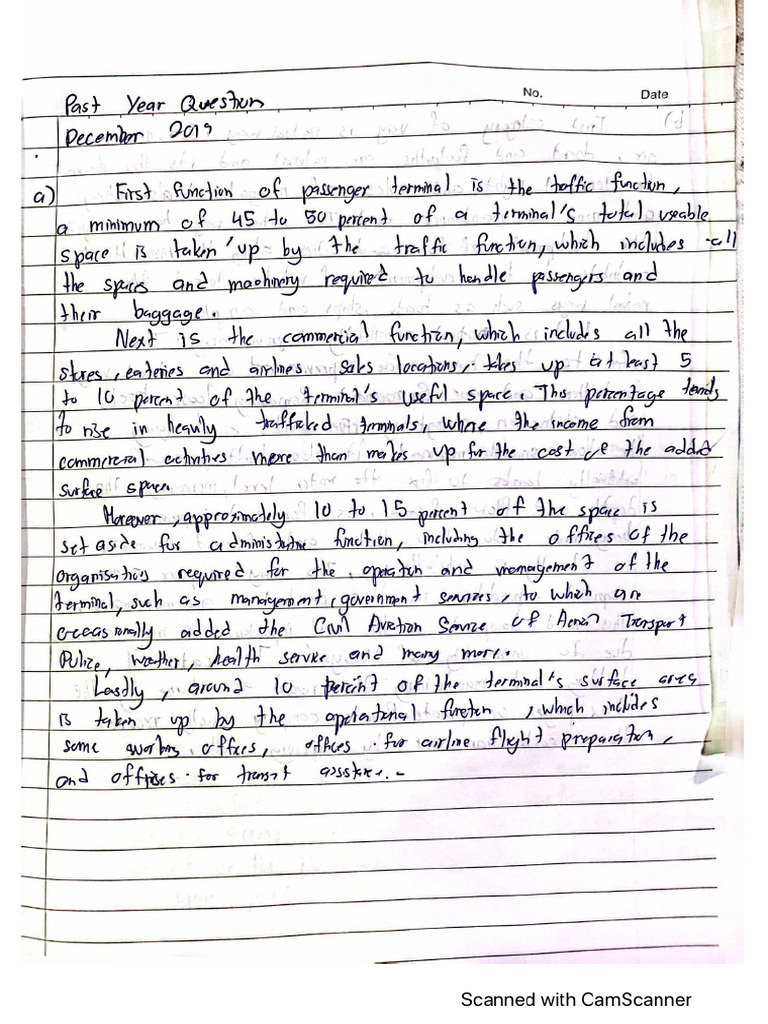 No. Date
Past Year Question
December 2019
a) First function of passenger terminal is the traffic function,
a minimum of 45 to 50 percent of a terminal's total useable
space is taken up by the traffic function, which includes all
the spaces and machinery required to handle passengers and
their baggage.
Next is the commercial function, which includes all the
stores, eateries and airlines sales locations, takes up at least 5
to 10 percent of the terminal's useful space. This percentage tends
to rise in heavily trafficked terminals, where the income from
commercial activities more than makes up for the cost of the added
surface space.
Moreover, approximately 10 to 15 percent of the space is
set aside for administrative function, including the offices of the
organisations required for the operation and management of the
terminal, such as management, government services, to which are
occasionally added the Civil Aviation Service of Aerial Transport
Police, weather, health service and many more.
Lastly, around 10 percent of the terminal's surface area
is taken up by the operational function, which includes
some working offices, offices for airline flight preparation,
and offices for transit
Scanned with CamScanner